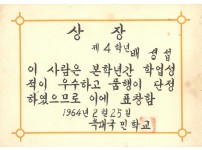 상장
제4학년
배 영섭
이 사람은 본학년간 학업성
적이 우수하고 품행이 단정
하였으므로 이에 표창함
1964년 2월 25일
국민학교